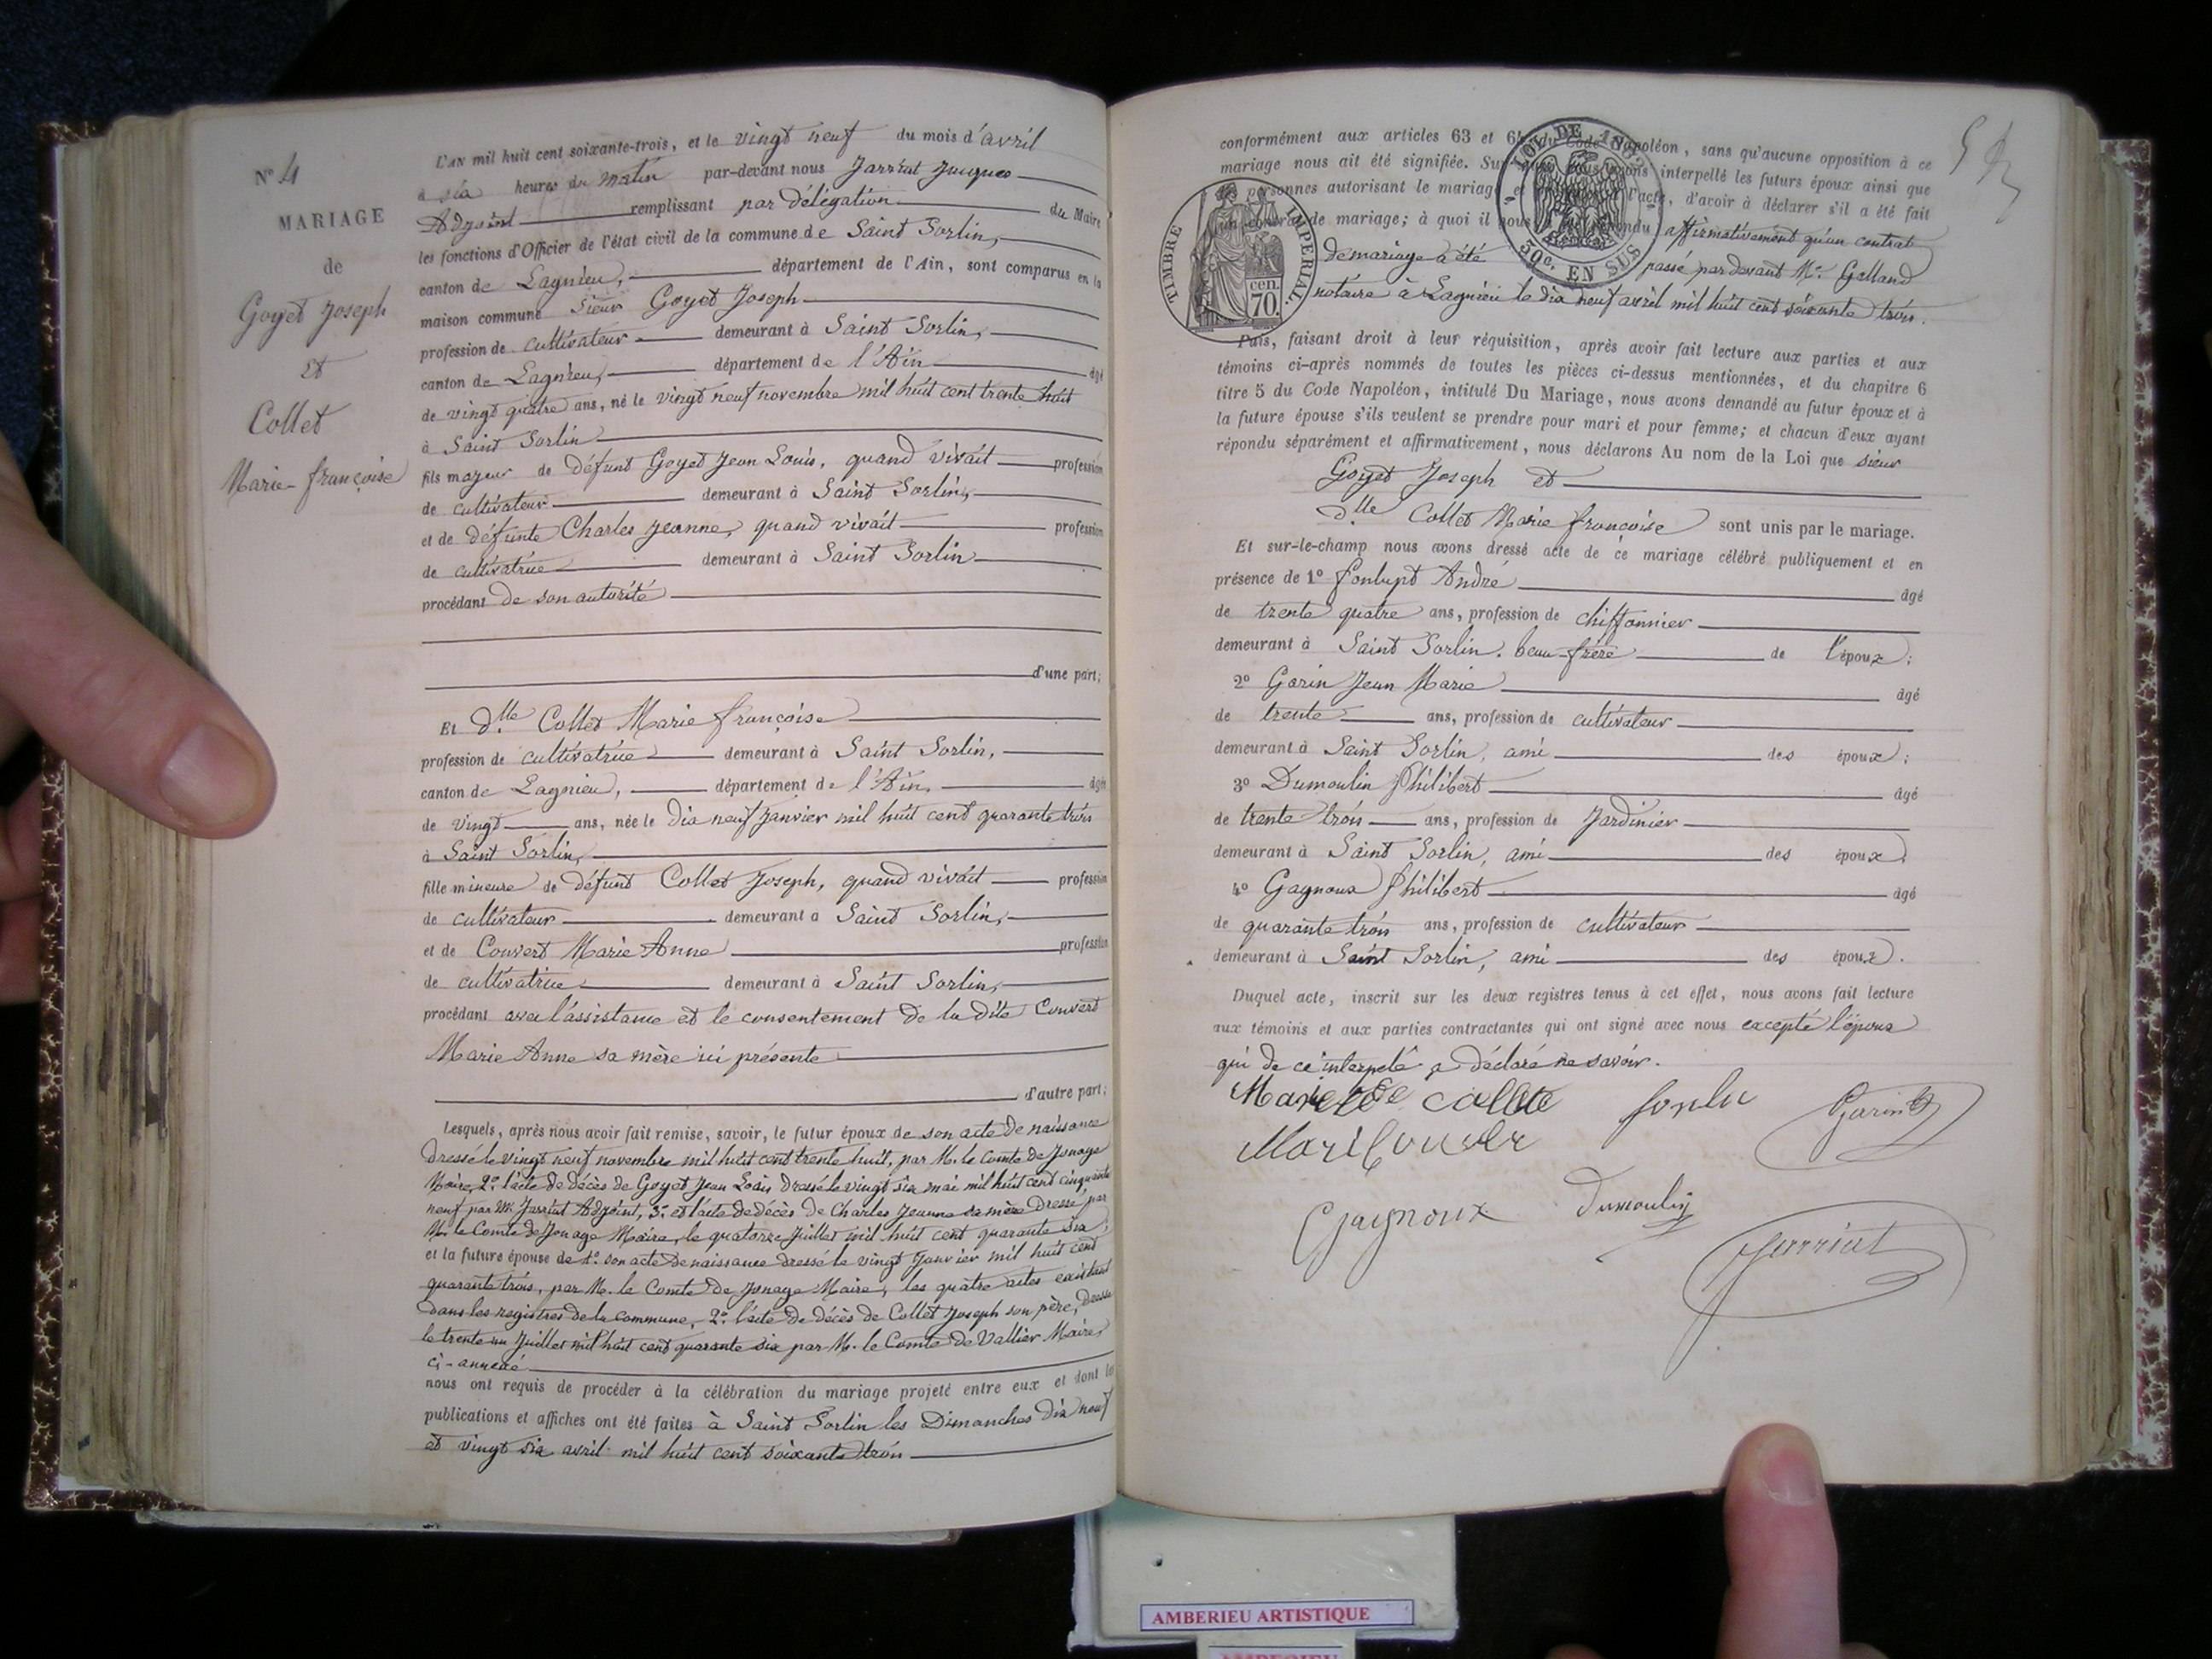 N° 4
MARIAGE
de
Goyet Joseph
et
Collet
Marie-françoise
L'AN mil huit cent soixante-trois, et le vingt neuf du mois d'avril
à six heures du matin par-devant nous Jarriat Jacques
Adjoint remplissant par délégation du Maire
les fonctions d'Officier de l'état civil de la commune de Saint Sorlin,
canton de Lagnieu, département de l'Ain, sont comparus en la
maison commune Sieur Goyet Joseph
profession de cultivateur demeurant à Saint Sorlin,
canton de Lagnieu, département de l'Ain âgé
de vingt quatre ans, né le vingt neuf novembre mil huit cent trente huit
à Saint Sorlin
fils majeur de défunt Goyet Jean Louis, quand vivait profession
de cultivateur demeurant à Saint Sorlin,
et de défunte Charles Jeanne, quand vivait profession
de cultivatrice demeurant à Saint Sorlin
procédant de son autorité
d'une part;
Et dlle Collet Marie françoise
profession de cultivatrice demeurant à Saint Sorlin,
canton de Lagnieu, département de l'Ain, âgée
de vingt ans, née le dix neuf janvier mil huit cent quarante trois
à Saint Sorlin,
fille mineure de défunt Collet Joseph, quand vivait profession
de cultivateur demeurant à Saint Sorlin,
et de Convert Marie Anne profession
de cultivatrice demeurant à Saint Sorlin,
procédant avec l'assistance et le consentement de la dite Convert
Marie Anne sa mère ici présente
d'autre part;
Lesquels, après nous avoir fait remise, savoir, le futur époux de son acte de naissance
dressé le vingt neuf novembre mil huit cent trente huit, par M. le Comte de Jonage
Maire, 2° l'acte de décès de Goyet Jean Louis dressé le vingt six mai mil huit cent cinquante
neuf par M. Jarriat Adjoint, 3° et l'acte de décès de Charles Jeanne sa mère dressé par
M. le Comte de Jonage Maire, le quatorze Juillet mil huit cent quarante six;
et la future épouse de 1° son acte de naissance dressé le vingt Janvier mil huit cent
quarante trois, par M. le Comte de Jonage Maire, les quatre actes existant
dans les registres de la commune, 2° l'acte de décès de Collet Joseph son père, dressé
le trente un Juillet mil huit cent quarante six par M. le Comte de Vallier Maire,
ci-annexé
nous ont requis de procéder à la célébration du mariage projeté entre eux et dont les
publications et affiches ont été faites à Saint Sorlin les Dimanches dix neuf
et vingt six avril mil huit cent soixante trois
conformément aux articles 63 et 64 du Code Napoléon, sans qu'aucune opposition à ce
mariage nous ait été signifiée. Sur interpellé les futurs époux ainsi que
les personnes autorisant le mariage et l'acte, d'avoir à déclarer s'il a été fait
un contrat de mariage; à quoi il nous répondu affirmativement qu'un contrat
de mariage a été passé par devant Me Galland
notaire à Lagnieu le dix neuf avril mil huit cent soixante trois.
TIMBRE IMPERIAL.
cen.
70.
LOI DE
50c. EN SUS
Puis, faisant droit à leur réquisition, après avoir fait lecture aux parties et aux
témoins ci-après nommés de toutes les pièces ci-dessus mentionnées, et du chapitre 6
titre 5 du Code Napoléon, intitulé Du Mariage, nous avons demandé au futur époux et à
la future épouse s'ils veulent se prendre pour mari et pour femme; et chacun d'eux ayant
répondu séparément et affirmativement, nous déclarons Au nom de la Loi que sieur
Goyet Joseph et
dlle Collet Marie françoise sont unis par le mariage.
Et sur-le-champ nous avons dressé acte de ce mariage célébré publiquement et en
présence de 1° fonlupt André âgé
de trente quatre ans, profession de chiffonnier
demeurant à Saint Sorlin. beau-frère de l'époux;
2° Garin Jean Marie âgé
de trente ans, profession de cultivateur
demeurant à Saint Sorlin, ami des époux;
3° Dumoulin Philibert âgé
de trente trois ans, profession de Jardinier
demeurant à Saint Sorlin, ami des époux;
4° Gagnoux Philibert âgé
de quarante trois ans, profession de cultivateur
demeurant à Saint Sorlin, ami des époux.
Duquel acte, inscrit sur les deux registres tenus à cet effet, nous avons fait lecture
aux témoins et aux parties contractantes qui ont signé avec nous excepté l'époux
qui de ce interpelé a déclaré ne savoir.
Garin
Gagnoux Dumoulin
Jarriat
AMBERIEU ARTISTIQUE
AMBERIEU